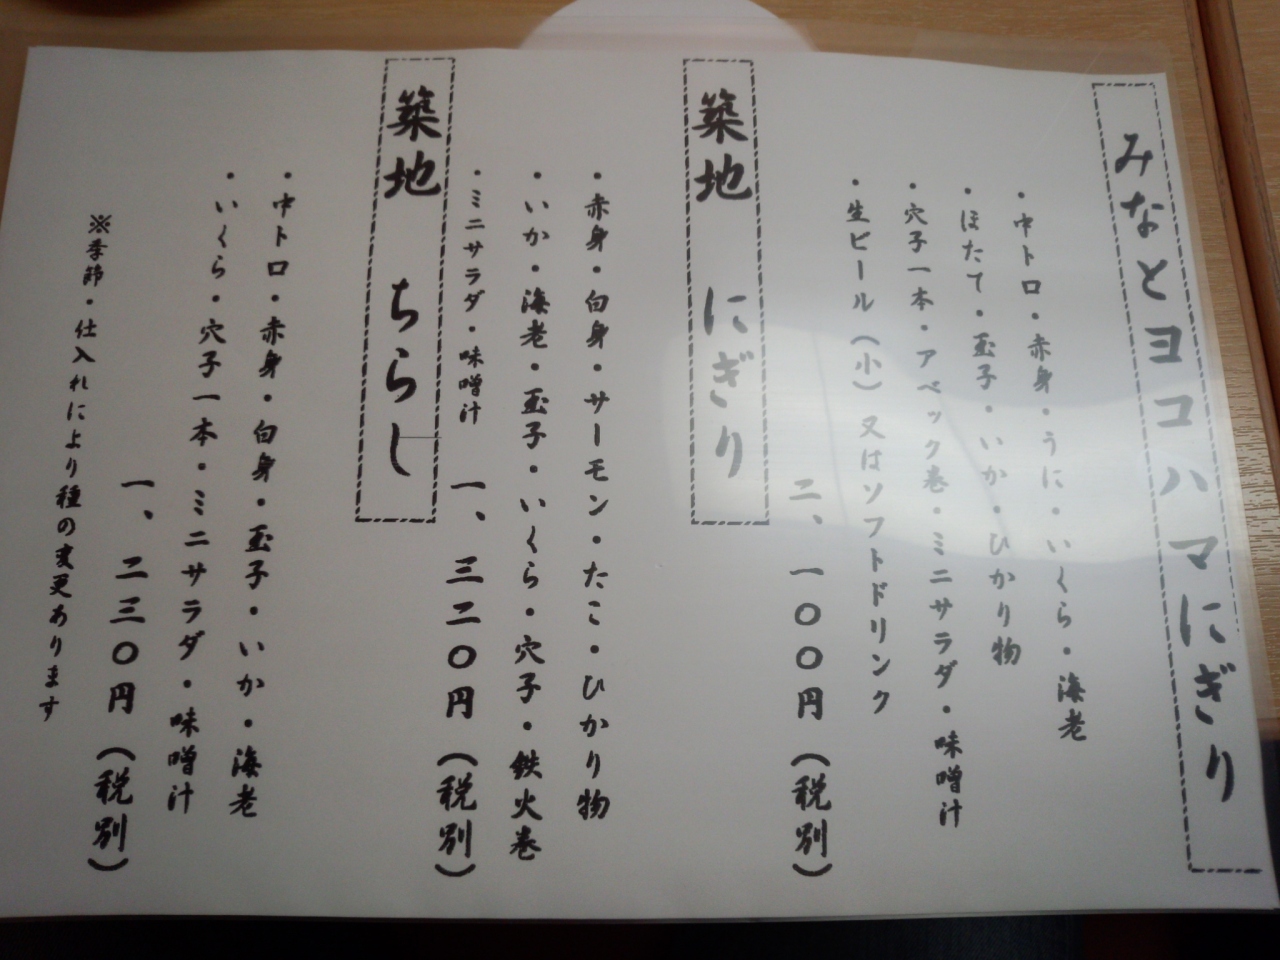 みなとヨコハマにぎり
・中トロ・赤身・うに・いくら・海老
・ほたて・玉子・いか・ひかり物
・穴子一本・アベック巻・ミニサラダ・味噌汁
・生ビール（小）又はソフトドリンク
二、一〇〇円（税別）
築地　にぎり
・赤身・白身・サーモン・たこ・ひかり物
・いか・海老・玉子・いくら・穴子・鉄火巻
・ミニサラダ・味噌汁
一、三二〇円（税別）
築地　ちらし
・中トロ・赤身・白身・玉子・いか・海老
・いくら・穴子一本・ミニサラダ・味噌汁
一、二三〇円（税別）
※季節・仕入れにより種の変更あります